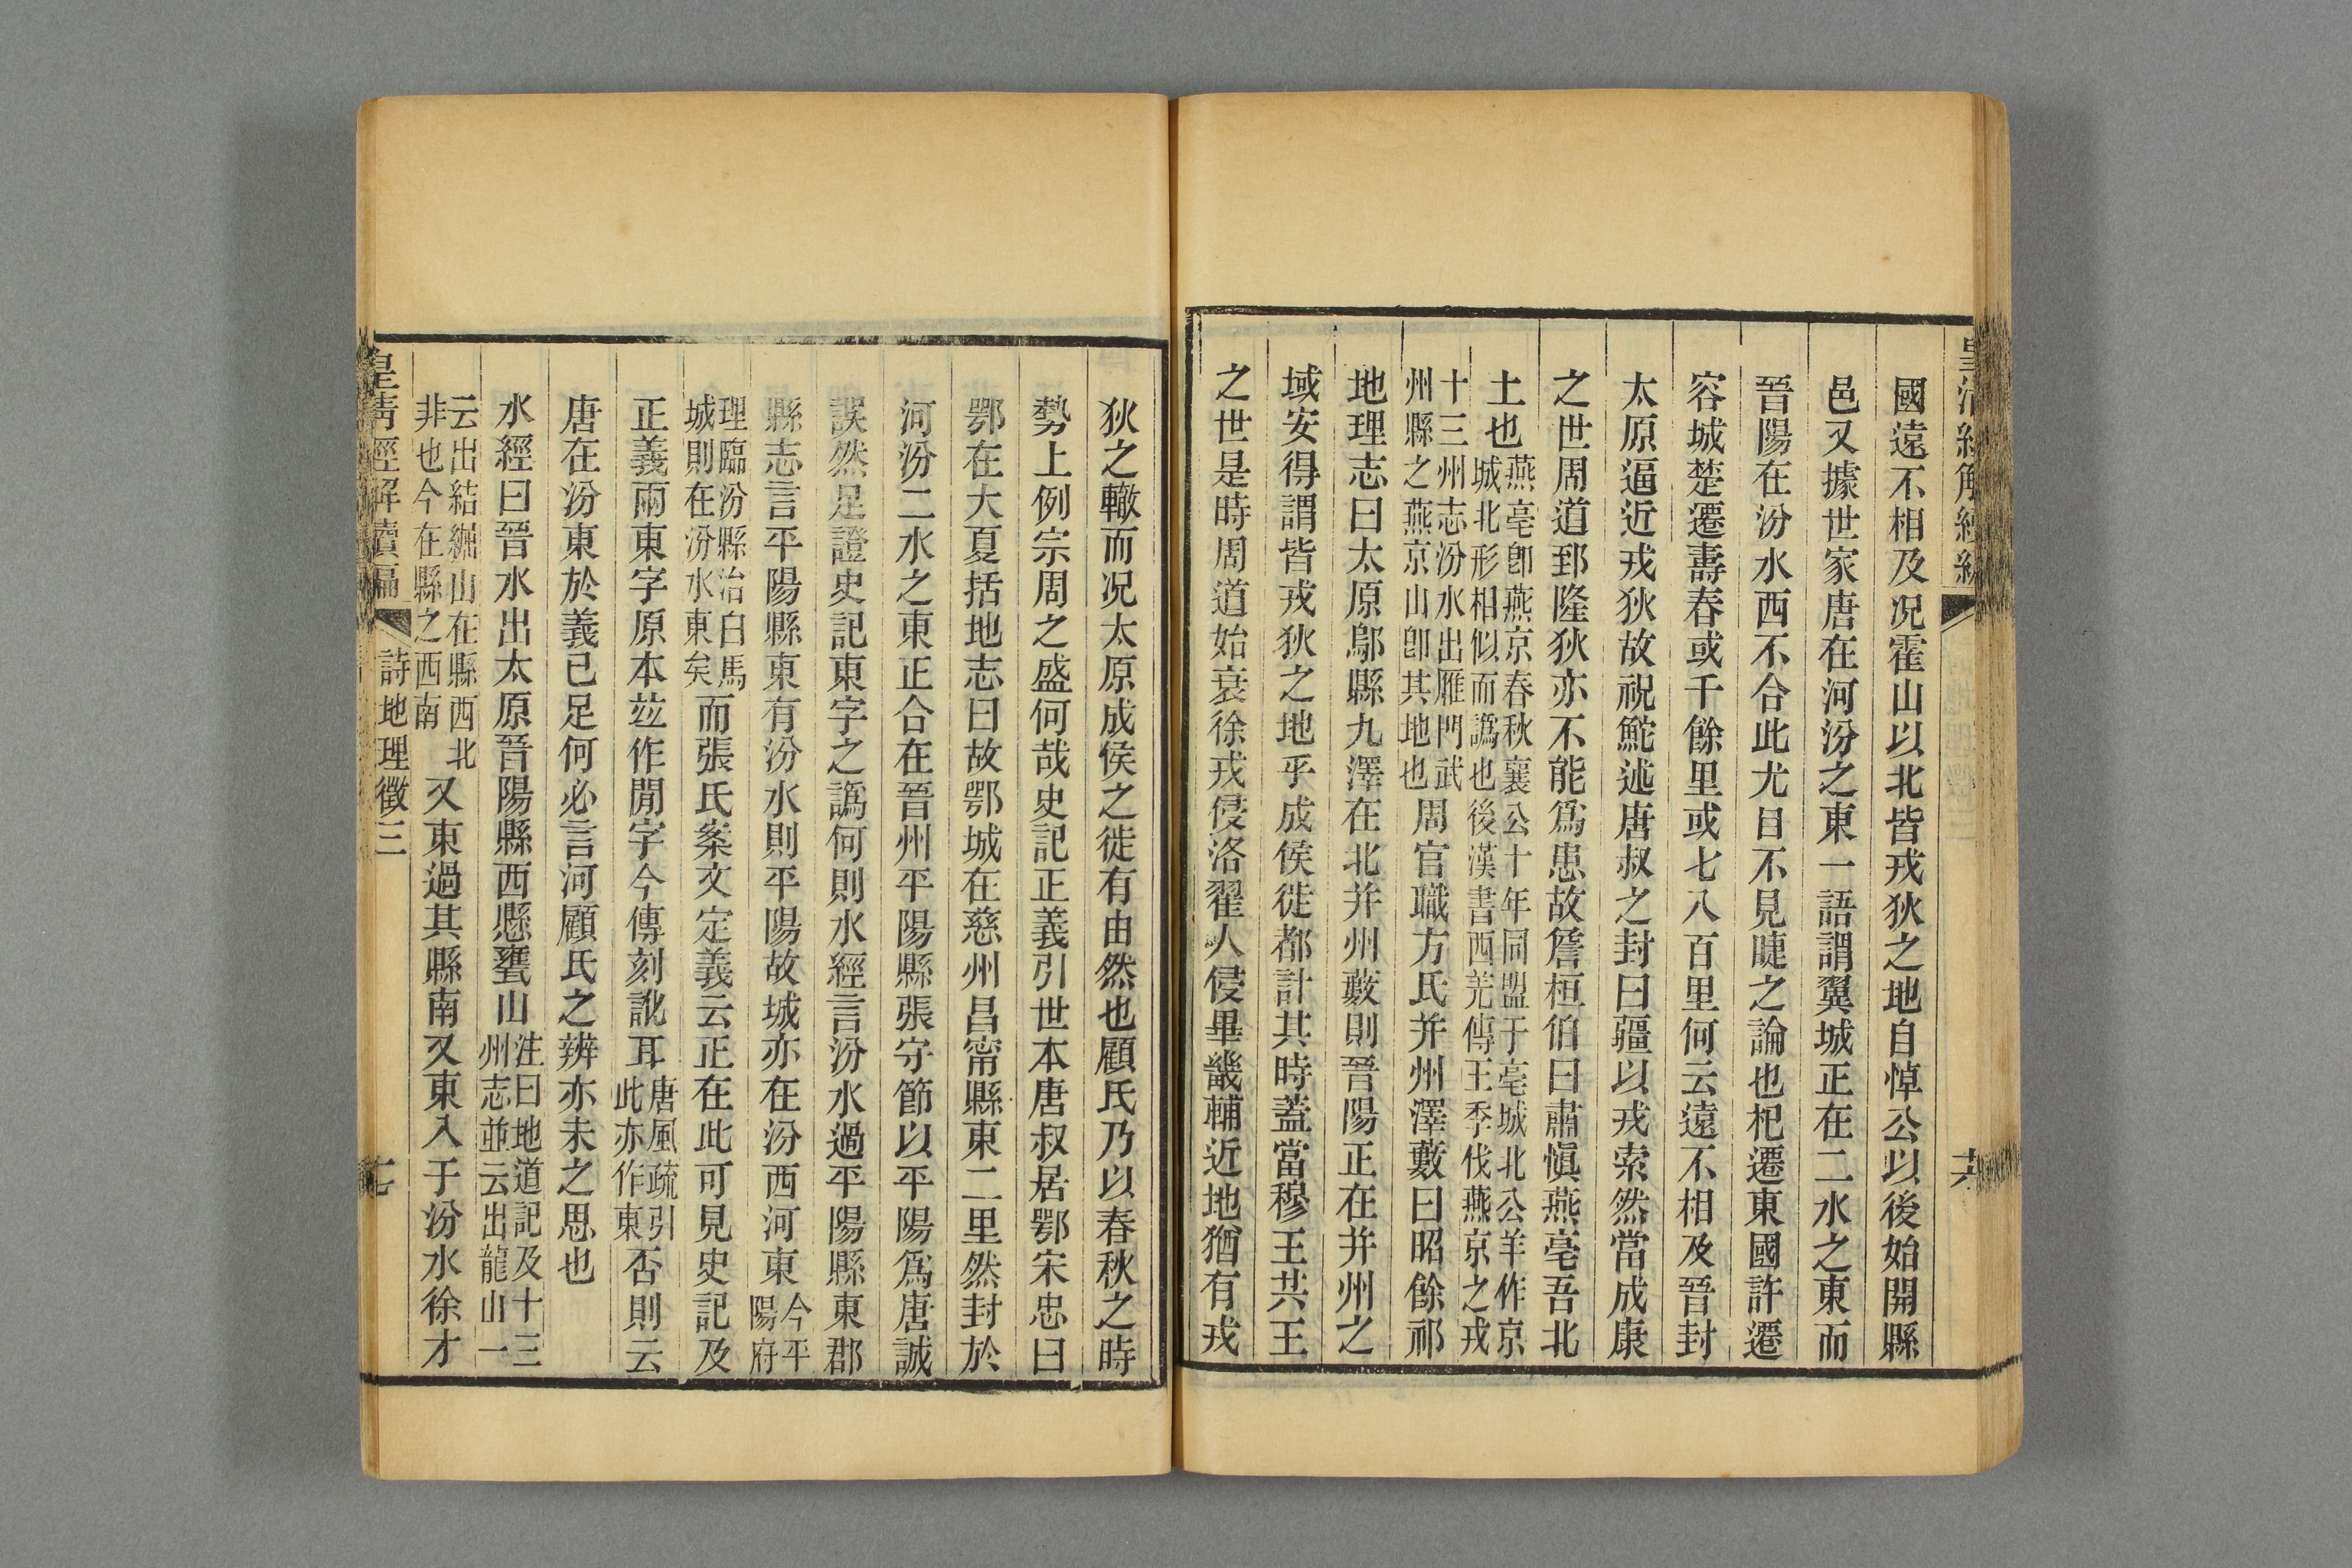 國遠不相及况霍山以北皆戎狄之地自悼公以後始開縣
邑又據世家唐在河汾之東一語謂翼城正在二水之東而
晉陽在汾水西不合此尤目不見睫之論也杞遷東國許遷
容城楚遷壽春或千餘里或七八百里何云遠不相及晉封
太原逼近戎狄故祝鮀述唐叔之封曰疆以戎索然當成康
之世周道郅隆狄亦不能爲患故詹桓伯曰肅愼燕亳吾北
土也燕亳卽燕京春秋襄公十年同盟于亳城北公羊作京
城北形相似而譌也後漢書西羌傳王季伐燕京之戎
十三州志汾水出雁門武
州縣之燕京山卽其地也周官職方氏并州澤藪曰昭餘祁
地理志曰太原鄔縣九澤在北并州藪則晉陽正在并州之
域安得謂皆戎狄之地乎成侯徙都計其時蓋當穆王共王
之世是時周道始衰徐戎侵洛翟人侵畢畿輔近地猶有戎
皇清經解續編
詩地理徵三
狄之轍而况太原成侯之徙有由然也顧氏乃以春秋之時
勢上例宗周之盛何哉史記正義引世本唐叔居鄂宋忠曰
鄂在大夏括地志曰故鄂城在慈州昌甯縣東二里然封於
河汾二水之東正合在晉州平陽縣張守節以平陽爲唐誠
誤然足證史記東字之譌何則水經言汾水過平陽縣東郡
縣志言平陽縣東有汾水則平陽故城亦在汾西河東今平
陽府
理臨汾縣治白馬
城則在汾水東矣而張氏案文定義云正在此可見史記及
正義兩東字原本竝作閒字今傳刻訛耳唐風疏引
此亦作東否則云
唐在汾東於義已足何必言河顧氏之辨亦未之思也
水經曰晉水出太原晉陽縣西懸甕山注曰地道記及十三
州志並云出龍山一
云出結絀山在縣西北
非也今在縣之西南又東過其縣南又東入于汾水徐才